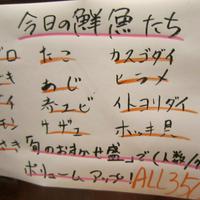 今日の鮮魚たち
たこ カスゴダイ
あじ ヒラメ
赤エビ イトヨリダイ
サザエ ホッキ貝
「旬のおまかせ盛」で(人数/
ボリュームアップ! ALL35